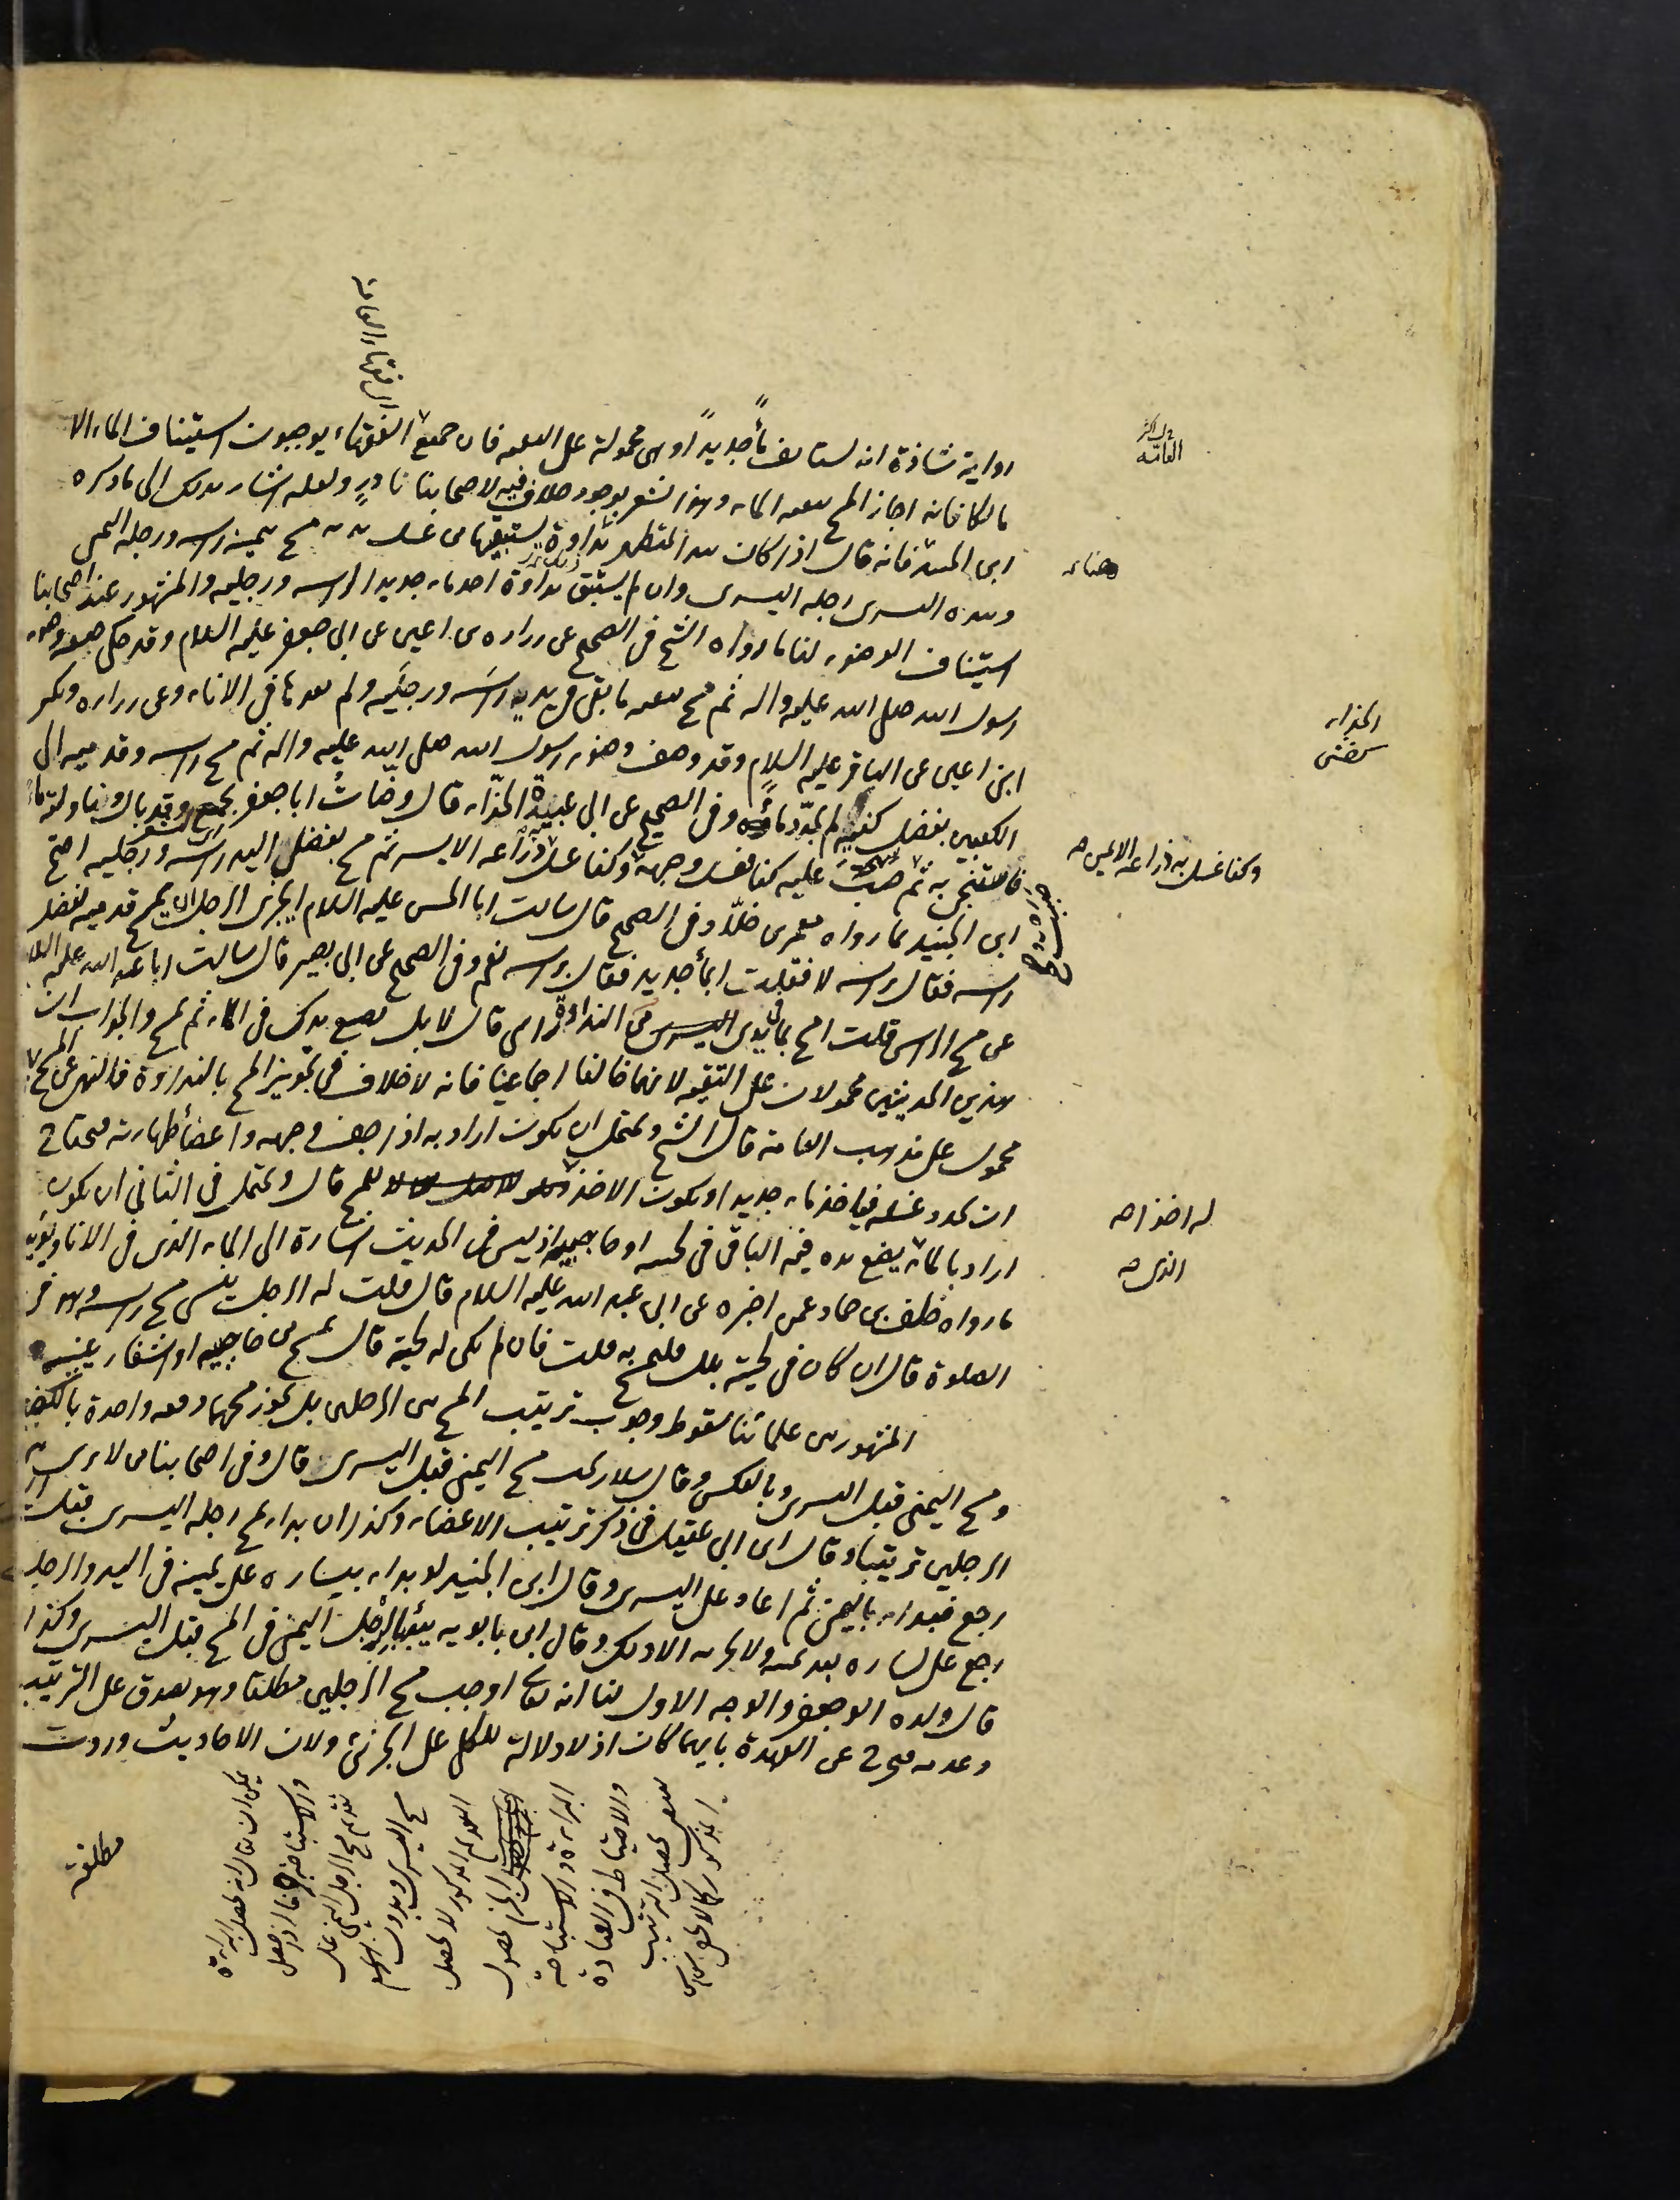 رواية شاذة انه يستأنف ماءً جديداً وهى محمولة على التقيه فان جميع الفقهاء يوجبون استيناف الماء الا
مالكا فانه اجاز المسح ببقية الماء وهذا يشعر بوجود خلاف فيه لاصحابنا نادرٍ ولعله اشار بذلك الى ما ذكره
ابن الجنيد فانه قال اذا كان بيد المتطهر نداوة يستبقيها من غسل يديه مسح بيمينه راسه ورجله اليمنى
وبيده اليسرى رجله اليسرى وان لم يستبق نداوة اخذ ماء جديدا لراسه ورجليه والمشهور عند اصحابنا
استيناف الوضوء لنا ما رواه الشيخ فى الصحيح عن زراره بن اعين عن ابى جعفر عليه السلام وقد حكى صفة وضوء
رسول الله صلى الله عليه واله ثم مسح ببقية ما بقى فى يديه راسَه ورجليه ولم يعدها فى الاناء وعن زراره وبكير
ابنى اعين عن الباقر عليه السلام وقد وصف وضوء رسول الله صلى الله عليه واله ثم مسح راسه وقدميه الى
الكعبين بفضل كفيه لم يجدد ماءً وفى الصحيح عن ابى عبيدة الحذاء قال وضأتُ ابا جعفر بجمع وقد بال وناولته ماء
فاستنجى به ثم صببت عليه كفا فغسل وجهه وكفا غسل ذراعه الايسر ثم مسح بفضل اليد راسه ورجليه احتج
ابن الجنيد بما رواه معمر بن خلّاد فى الصحيح قال سالت ابا الحسن عليه السلام ايجزى الرجل ان يمسح قدميه بفضل
راسه فقال براسه لا فقلت ابماءٍ جديد فقال براسه نعم وفى الصحيح عن ابى بصير قال سالت ابا عبد الله عليه السلام
عن مسح الراس قلت امسح بما فى يدى من النداوة راسى قال لا بل تضع يدك فى الماء ثم تمسح والجواب ان
هذين الحديثين محمولان على التقيه لانهما خالفا اجماعنا فانه لا خلاف فى تجويز المسح بالنداوة فالنهى عن المسح
محمول على مذهب العامة قال الشيخ ويحتمل ان يكون اراد به اذا جف وجهه واعضاء طهارته فيحتاج
ان يجدد غسله فياخذ ماء جديدا ويكون الاخذ للمسح قال ويحتمل فى الثانى ان يكون
اراد بالماء يضع يده فيه الباقى فى لحيته او حاجبيه اذ ليس فى الحديث اشارة الى الماء الذى فى الاناء ويؤيده
ما رواه خلف بن حماد عمن اخبره عن ابى عبد الله عليه السلام قال قلت له الرجل ينسى مسح راسه وهو فى
الصلوة قال ان كان فى لحيته بلل فليمسح به قلت فان لم يكن له لحية قال يمسح من حاجبيه او اشفار عينيه
المشهور بين علمائنا سقوط وجوب ترتيب المسح بين الرجلين بل يجوز مسحهما دفعه واحدة بالكفين
ومسح اليمنى قبل اليسرى وبالعكس وقال سلار يجب مسح اليمنى قبل اليسرى قال وفى اصحابنا من لا يرى بين
الرجلين ترتيبا وقال ابن ابى عقيل فى ذكر ترتيب الاعضاء وكذا ان بدا بمسح رجله اليسرى قبل
رجع فبداء باليمنى ثم اعاد على اليسرى وقال ابن الجنيد لو بداء بيساره على يمينه فى اليد والرجل
رجع على يساره بعد يمينه ولا يجزيه الا ذلك وقال ابن بابويه يبدأ بالرجل اليمنى فى المسح قبل اليسرى وكذا
قال ولده ابو جعفر والوجه الاول لنا انه تعالى اوجب مسح الرجلين مطلقا وهو يصدق على الترتيب
وعدمه فيخرج عن العهدة بايهما كان اذ لا دلالة للكلى على الجزئى ولان الاحاديث وردت
مطلقة
اى فقهاء العامة
العامة
الحذاء
وكفا غسل به ذراعه الايمن صح
له اخذا صح
الذى صح
يمكن ان يقال انه تحصل البراءة
تقديم مسح الرجل اليمنى على
مسح اليسرى وبدون
البراءة والاستباحة
والاحتياط فى العبادة
تحصيل الترتيب